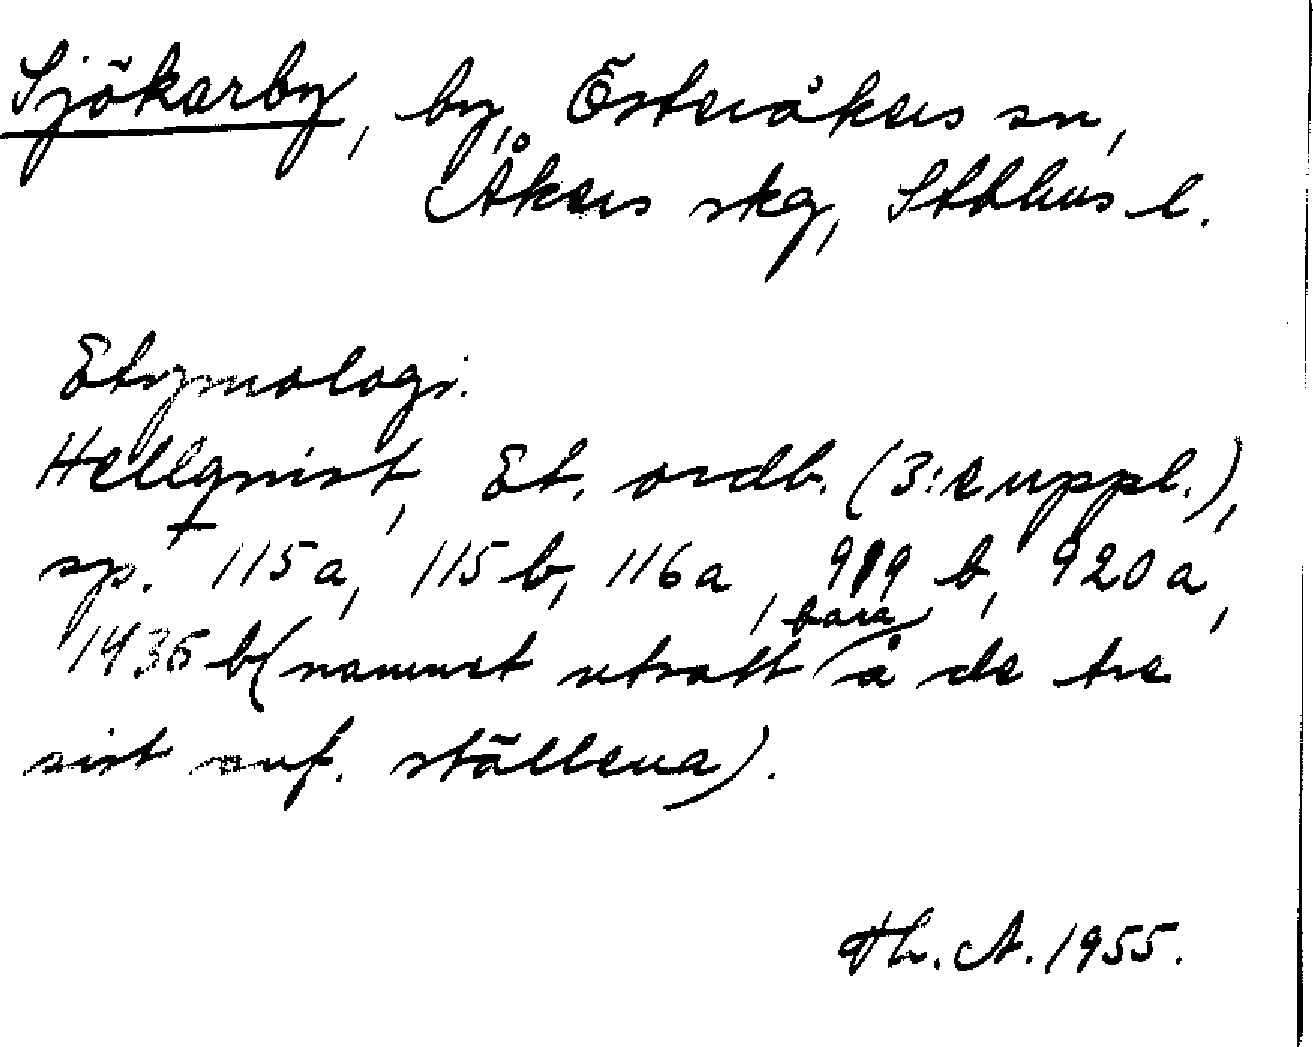 Sjökarby, by, Österåkers sn,
Åkers skg, Sthlms l.
Etymologi.
Hellqvist, Et. ordb. (3:e uppl.),
sp. 115a, 115b, 116a, 919 b, 920a,
bara
1436 b (namnet utsatt å de tre
sist anf. ställena).
Th. A. 1955.